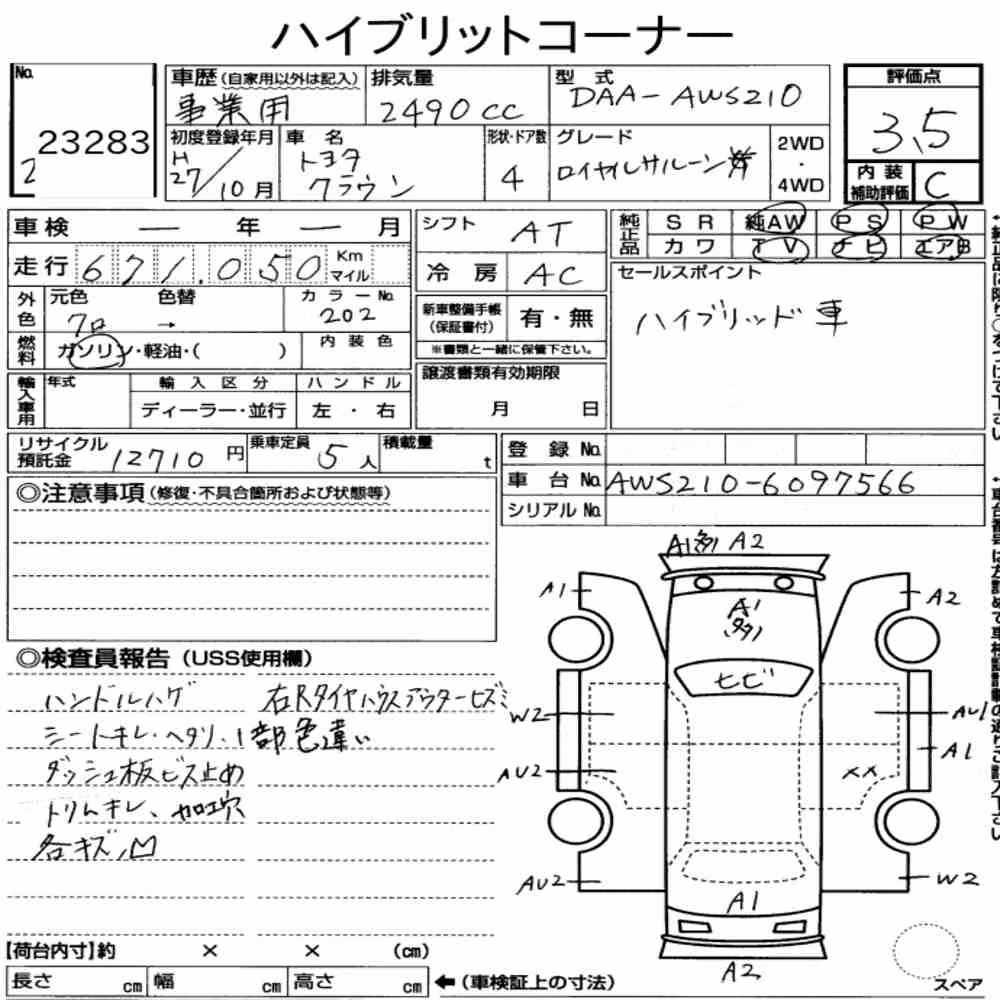 ハイブリットコーナー
No.
2
23283
車歴(自家用以外は記入)
事業用
排気量
2490cc
型式
DAA-AWS210
評価点
3.5
初度登録年月
H
27/10月
車名
トヨタ
クラウン
形状・ドア数
4
グレード
ロイヤルサルーン
2WD
・
4WD
内装
補助評価
C
車検 ― 年 ― 月
走行 671.050 Km マイル
外色
元色
クロ
色替
→
カラーNo.
202
燃料
ガソリン・軽油・( )
内装色
輸入車用
年式
輸入区分
ディーラー・並行
ハンドル
左・右
シフト AT
冷房 AC
新車整備手帳
(保証書付)
有・無
※書類と一緒に保管下さい。
譲渡書類有効期限
月 日
純正品
SR 純AW PS PW
カワ TV ナビ エアB
セールスポイント
ハイブリッド車
リサイクル
預託金
12710円
乗車定員
5人
積載量
t
登録No.
車台No. AWS210-6097566
シリアルNo.
◎注意事項(修復・不具合箇所および状態等)
◎検査員報告(USS使用欄)
ハンドルハゲ
シートキレ・ヘタリ・1部色違い
ダッシュ板ビス止め
トリムキレ、加工穴
各キズ、凹
右Rタイヤハウスアウターヒズミ
A1多 A2
A1
A2
A1
(多)
ヒビ
W2
AU1
A1
AU2
××
AU2
W2
A1
A2
スペア
【荷台内寸】約 × × (cm)
長さ cm 幅 cm 高さ cm ←(車検証上の寸法)